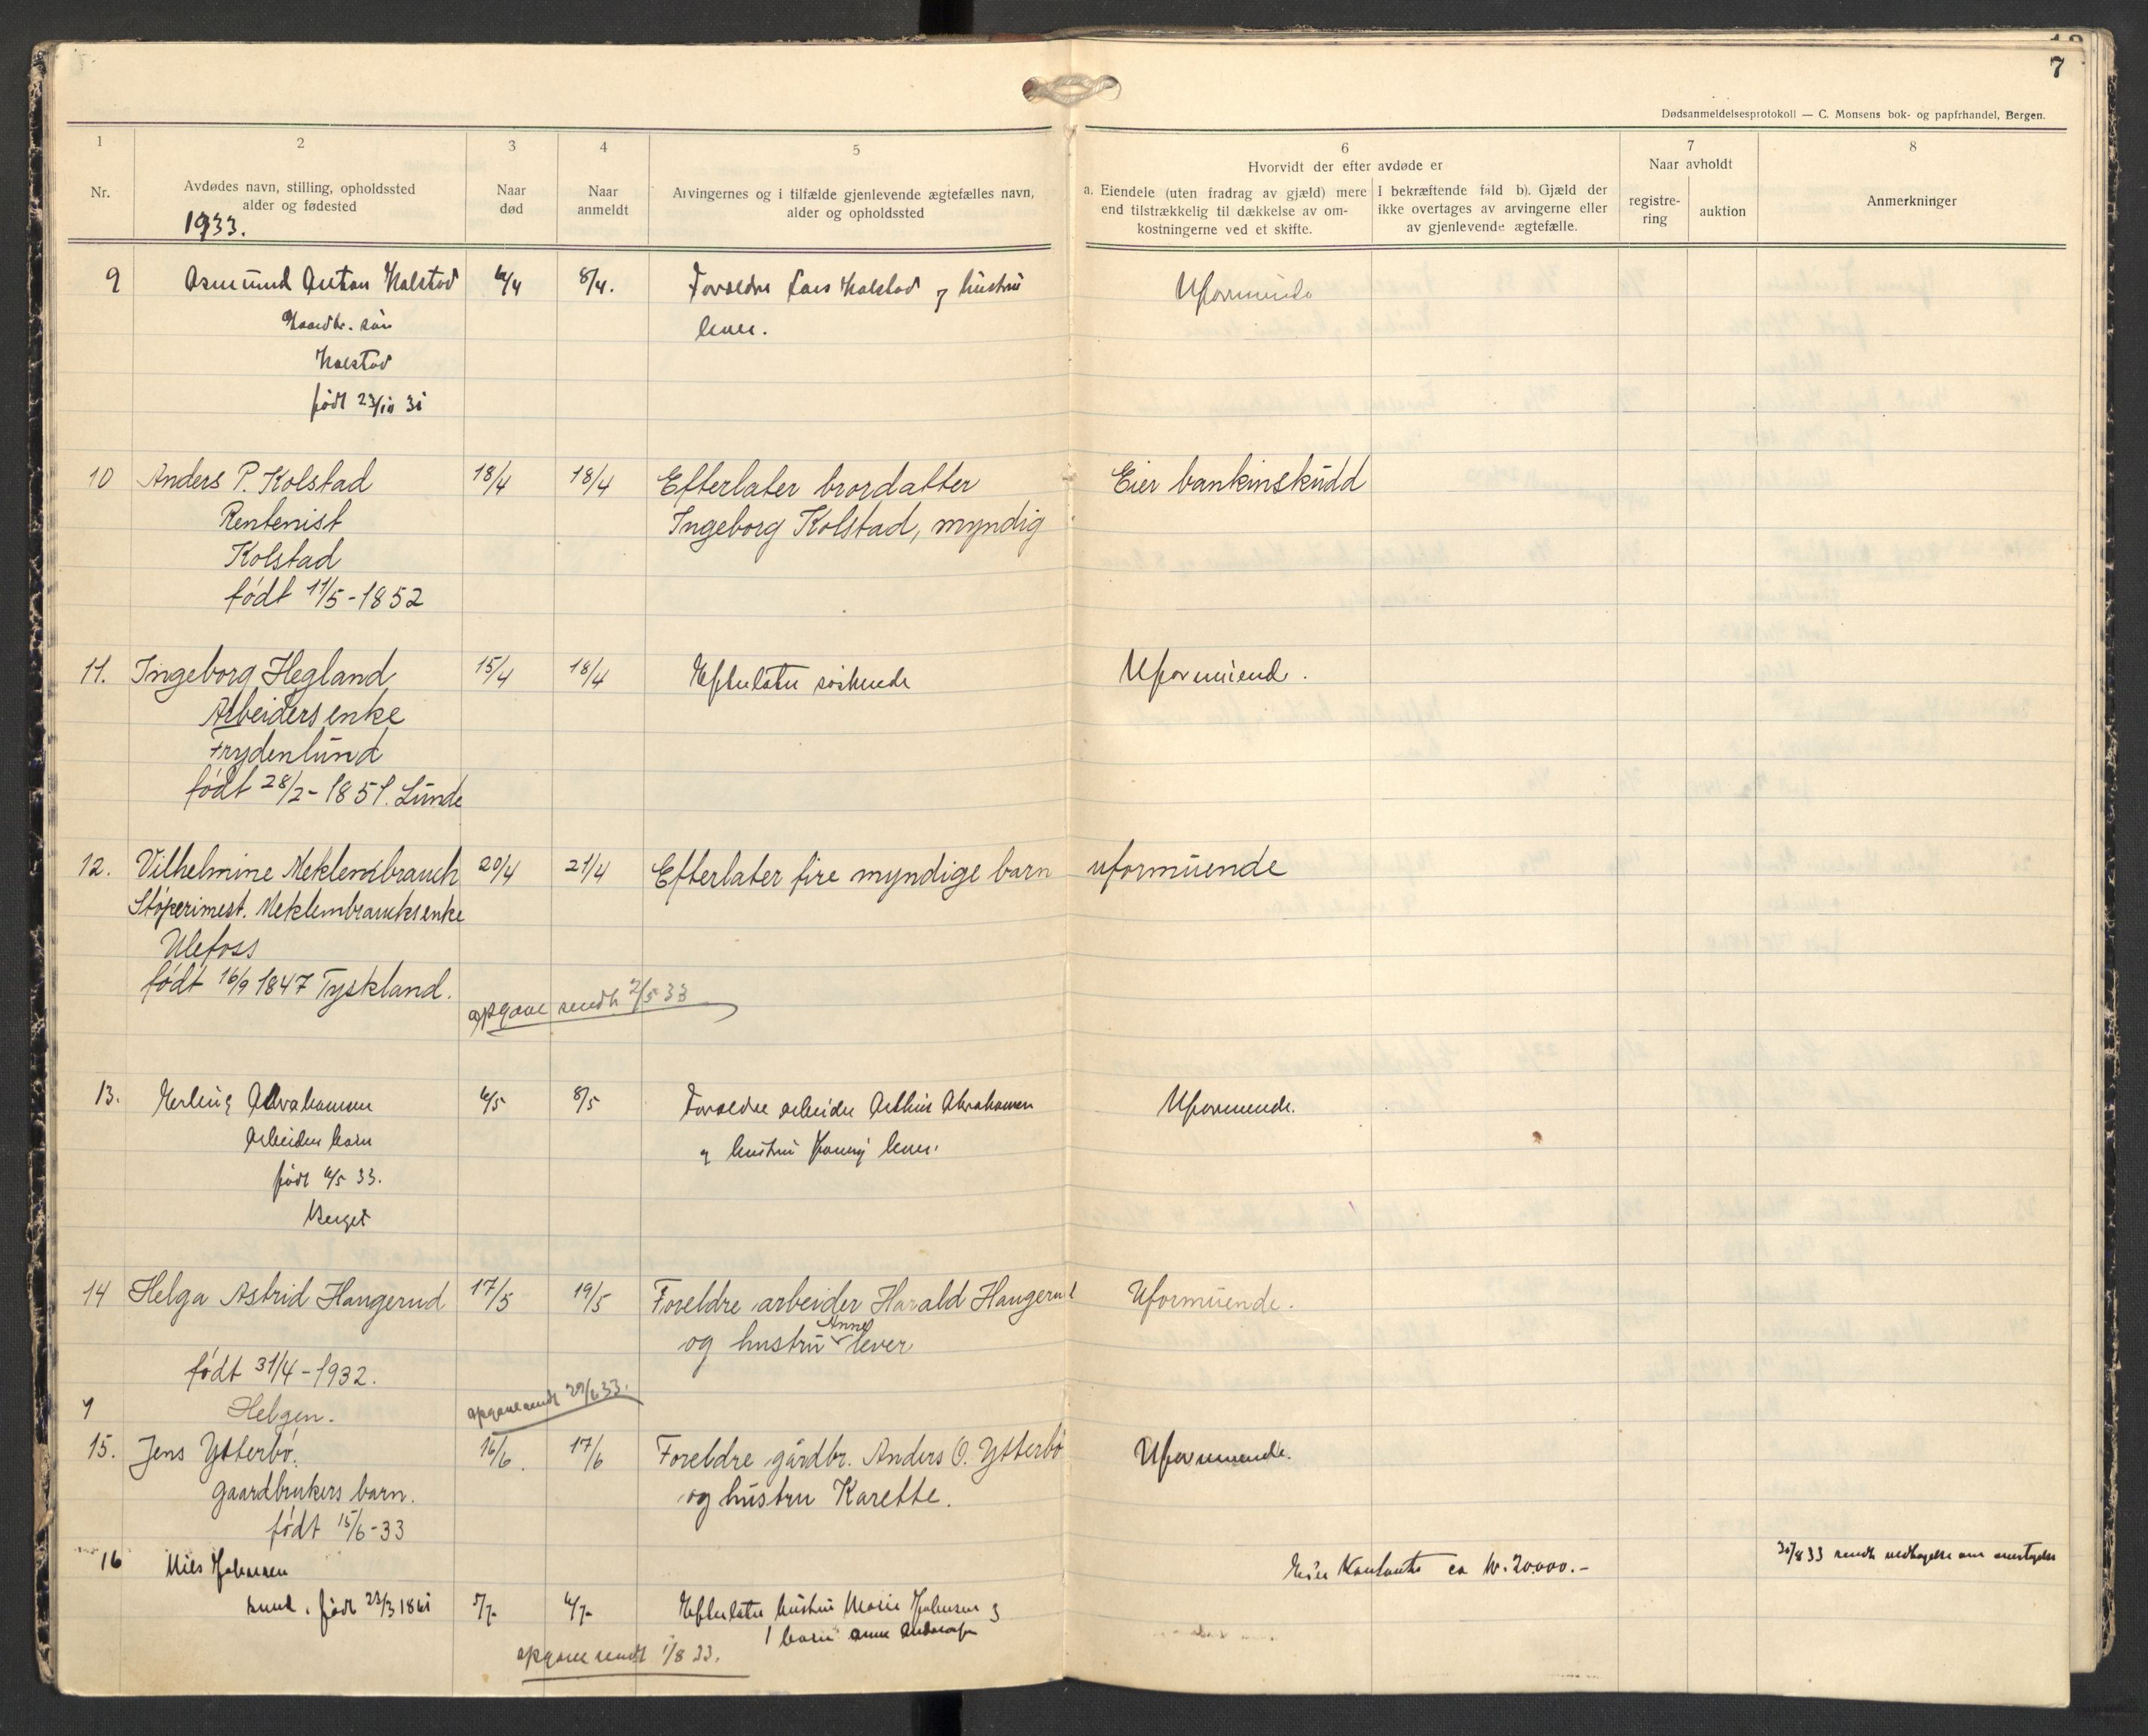 7
Dødsanmeldelsesprotokoll — C. Monsens bok- og papirhandel, Bergen.
1 2 3 4 5 6 7 8
Nr.
Avdødes navn, stilling, opholdssted
alder og fødested
Naar
død
Naar
anmeldt
Arvingernes og i tilfælde gjenlevende ægtefælles navn,
alder og opholdssted
Hvorvidt der efter avdøde er
a. Eiendele (uten fradrag av gjæld) mere
end tilstrækkelig til dækkelse av om-
kostningerne ved et skifte.
I bekræftende fald b). Gjæld der
ikke overtages av arvingerne eller
av gjenlevende ægtefælle.
Naar avholdt
registre-
ring
auktion
Anmerkninger
1933.
9 Asmund Anton Kolstad 6/4 8/4. Foreldre Lars Kolstad og hustru Uformuende
Gaardbr. søn lever.
Kolstad
født 31
10 Anders P. Kolstad 18/4 18/4 Efterlater brordatter Eier bankinskudd
Rentenist Ingeborg Kolstad, myndig
Kolstad
født 11/5-1852
11. Ingeborg Hegland 15/4 18/4 Efterlater søskende Uformuende.
Arbeidersenke
Frydenlund
født 28/2-1851. Lunde
12. Vilhelmine Meklembrauck 20/4 21/4 Efterlater fire myndige barn uformuende
Støperimest. Meklembraucks enke
Ulefoss
født 16/9 1847 Tyskland.
opgave sendt 2/5 33
13. Erling Abrahamsen 6/5 8/5 Foreldre arbeider Arthur Abrahamsen Uformuende.
Arbeiders barn og hustru lever.
født 6/5 33.
Berget
14 Helga Astrid Haugerud 17/5 19/5 Foreldre arbeider Harald Haugerud Uformuende.
og hustru Anne lever
født 31/4-1932.
Helgen.
opgave sendt 29/6 33.
15. Jens Ytterbø. 16/6. 17/6 Foreldre gårdbr. Anders O. Ytterbø Uformuende.
Gaardbrukers barn. og hustru Karette.
født 15/6-33
16 Nils Johnsen Eier Kontanter ca kr. 20.000.- 31/8 33 sendt
født 23/3 1861 5/7 6/7 Efterlater hustru Marie Johnsen og
1 barn
opgave sendt 1/8 33.